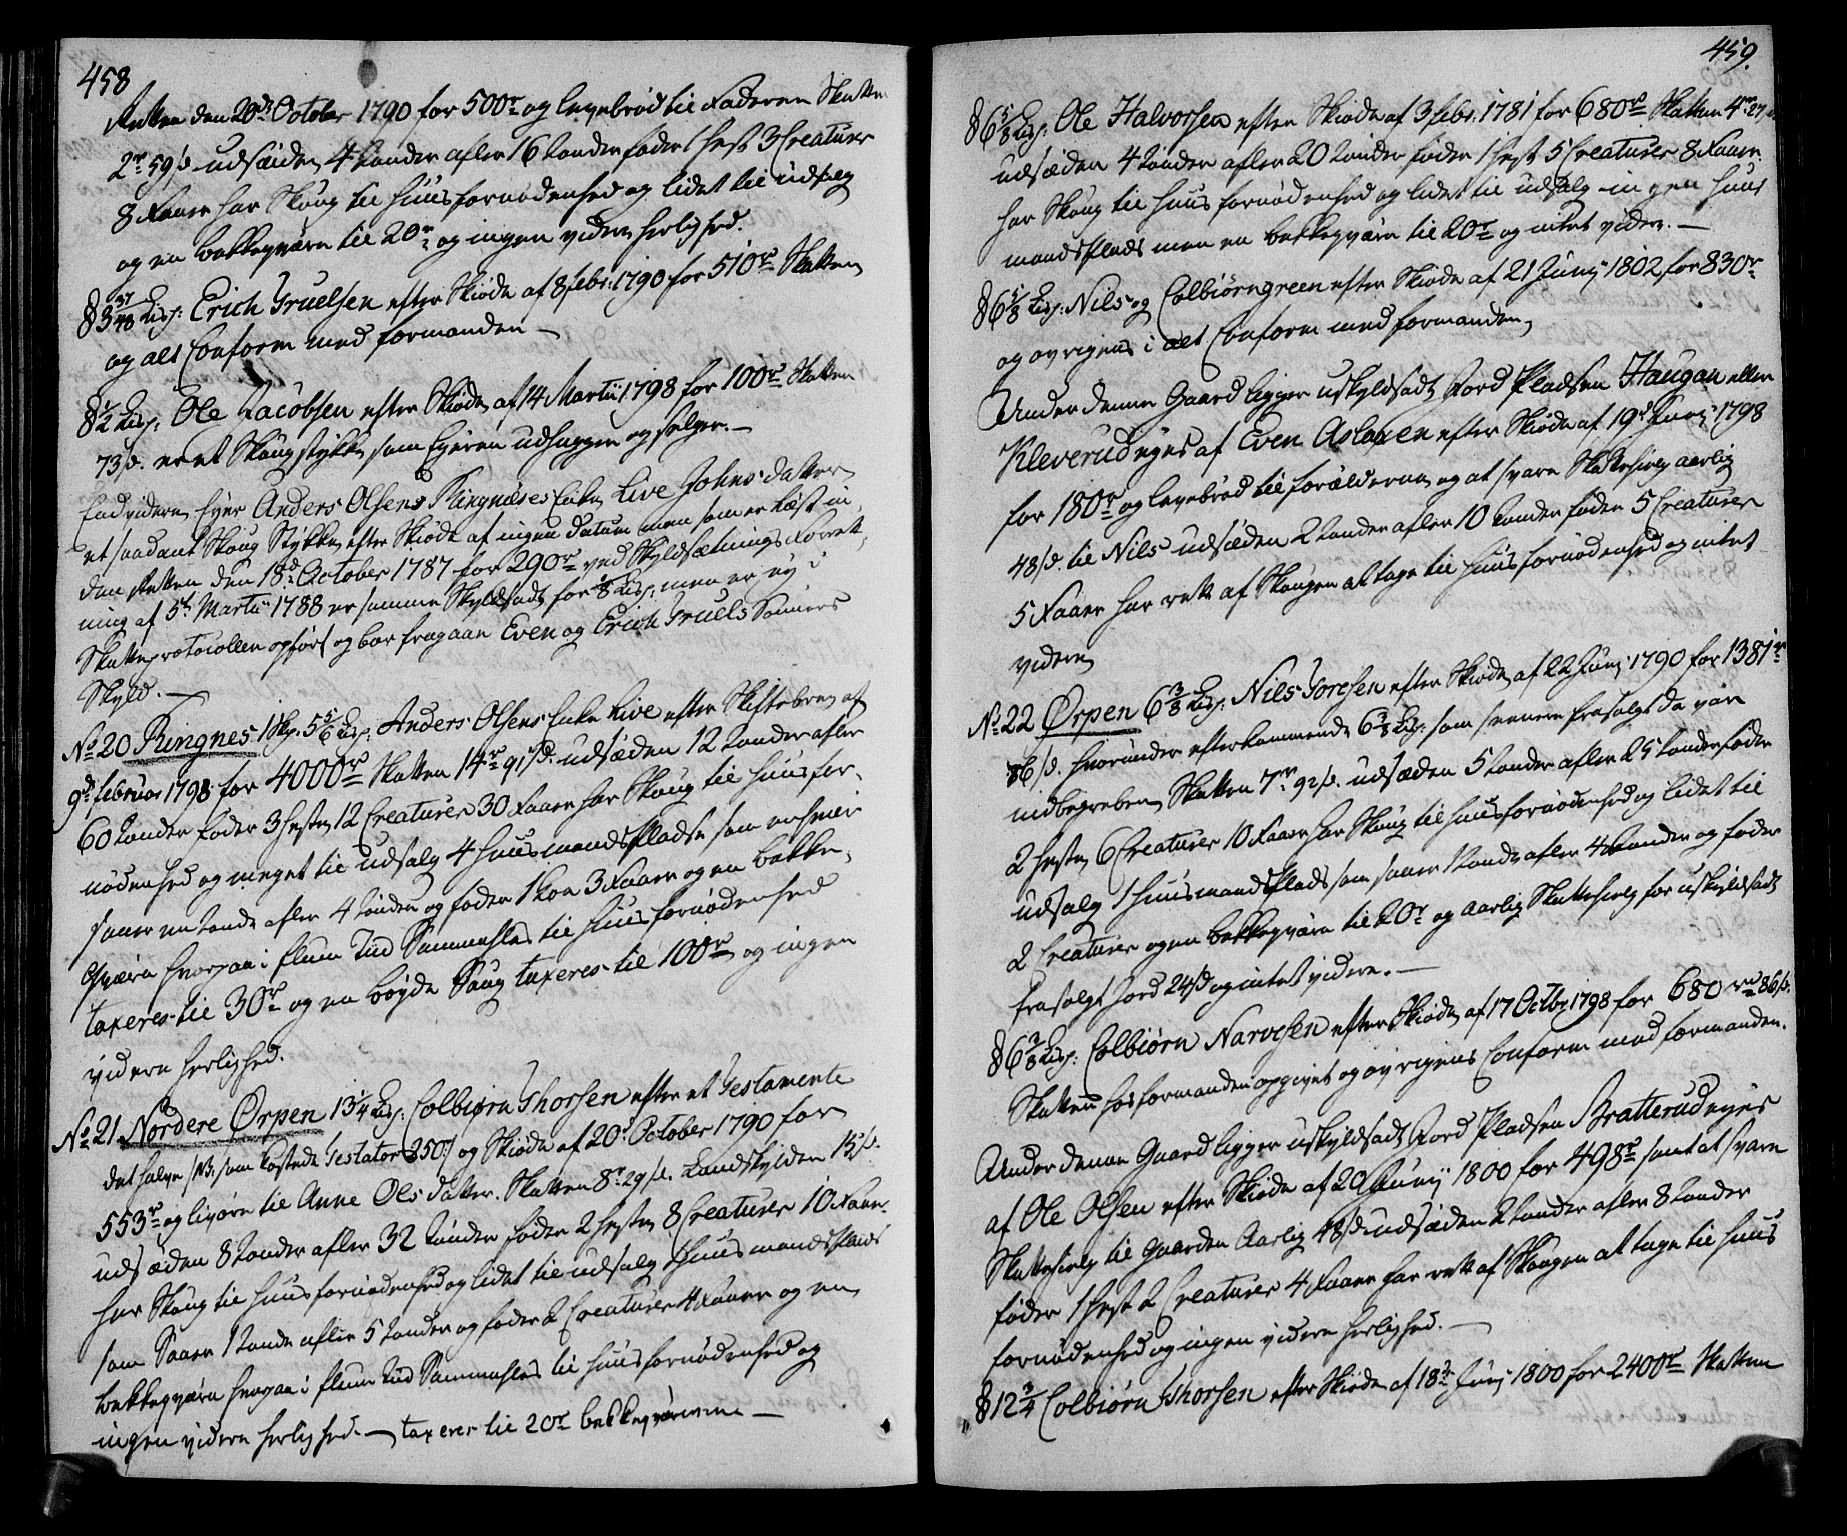 458
Retten den 20de October 1790 for 500r og levebrød til Faderen Skatten
2r 59s. udsæden 4 tønder afler 16 tønder føder 1 hest 3 Creaturer
8 Faaer har Skoug til huusfornødenhed og lidet til udsalg
og en bekkeqværn til 20r og ingen videre herlighed.
§ 3 37/48 Lisp: Erich Truelsen efter Skiøde af 8 febr: 1790 for 510r Skatten
og alt Conform med formanden
§ 1/2 Lisp: Ole Jacobsen efter Skiøde af 14 Martii 1798 for 100r Skatten
73s. er et Skougstykke som Eyeren udhugger og selger.
Endvidere eyer Anders Olsens Ringneses Enke Live Johnsdatter
et saadant Skoug Stykke efter Skiøde af ingen datum men som er læst in,
den Retten den 18d October 1787 for 290r ved Skyldsætnings Forret,
ning af 5t Martii 1788 er samme Skyldsadt for 1/8 Lisp: men er ey i
Skatteprotocollen opført og bør fragaae Even og Erich Truels Sønners
Skyld.
No 20 Ringnes 1 Skp. 5 5/6 Lisp: Anders Olsens Enke Live efter Skiftebrev af
9d februar 1798 for 4000r Skatten 14r 91s. udsæden 12 tønder afler
60 tønder føder 3 heste 12 Creaturer 30 Faaer har Skoug til huusfor,
nødenhed og meget til udsalg 4 huusmandsPladse som enhver
saaer en tønde afler 4 tønder og føder 1 koe 3 Faaer og en bekke,
qværn hvorpaa i flom Tiid Sammahles til huusfornødenhed
taxeres til 30r og en bøyde Saug taxeres til 100r og ingen
videre herlighed.
No 21 Nordere Ørpen 13 1/4 Lisp: Colbiørn Thorsen efter et Testamente
det halve /NB. som kostede Testator 250/ og Skiøde af 20d October 1790 for
553r og ligøre til Anne Olsdatter. Skatten 8r 29s. Landskylden 15s.
udsæden 8 tønder afler 32 tønder føder 2 heste 8 Creaturer 10 Faaer
har Skoug til huusfornødenhed og lidet til udsalg 1 huusmandsplads
som Saaer 1 tønde afler 5 tønder og føder 2 Creaturer 4 Faaer og en
bekkeqværn hvorpaa i flom tiid Sammahles til huusfornødenhed og
ingen videre herlighed. taxeres til 20r bekkeqværnene
459.
§ 6 5/8 Lisp: Ole Halvorsen efter Skiøde af 3 febr: 1781 for 680r Skatten 4r 27s.
udsæden 4 tønder afler 20 tønder føder 1 hest 5 Creaturer 8 Faaer
har Skoug til huusfornødenhed og lidet til udsalg ingen huus
mandsplads men en bekkeqværn til 20r og intet videre.
§ 6 5/8 Lisp: Nils og Colbiørn green efter Skiøde af 21 Junij 1802 for 830r
og øvrigens i alt Conform med formanden
Under denne Gaard ligger uskyldsadt Jord Pladsen Haugan eller
Kleverud eyes af Even Aslaxen efter Skiøde af 19d Junij 1798
for 180r og levebrød til forældrene og at svare Skattehielp aarlig
48s. til Nils udsæden 2 tønder afler 10 tønder føder 5 Creaturer
5 Faaer har rett af Skougen at tage til huusfornødenhed og intet
videre
No 22 Ørpen 6 3/8 Lisp: Nils Toresen efter Skiøde af 22 Junij 1790 for 1381r
86s. hvorunder efterkommende 6 3/8 Lisp: som seenere frasolgt da var
indbegreben Skatten 7r 92s. udsæden 5 tønder afler 25 tønder føder
2 heste 6 Creaturer 10 Faaer har Skoug til huusfornødenhed og lidet til
udsalg 1 huusmandsPlads som saaer 1 tønde afler 4 tønder og føder
2 Creaturer og en bekkeqværn til 20r og aarlig Skattehielp for uskyldsadt
frasolgt jord 24s og intet videre.
§ 6 3/8 Lisp: Colbiørn Narvesen efter Skiøde af 17 Octbr 1798 for 680r 86s.
Skatten hos formanden opgivet og øvrigens Conform med formanden.
Under denne Gaard ligger uskyldsadt Jord Pladsen Bratterud eyes
af Ole Olsen efter Skiøde af 20 Junij 1800 for 498r samt at svare
Skattehielp til Gaarden Aarlig 48s udsæden 2 tønder afler 8 tønder
føder 1 hest 2 Creaturer 4 Faaer har rett af Skougen at tage til huus
fornødenhed og ingen videre herlighed.
§ 12 3/4 Colbiørn Thorsen efter Skiøde af 18d Junij 1800 for 2400r Skatten